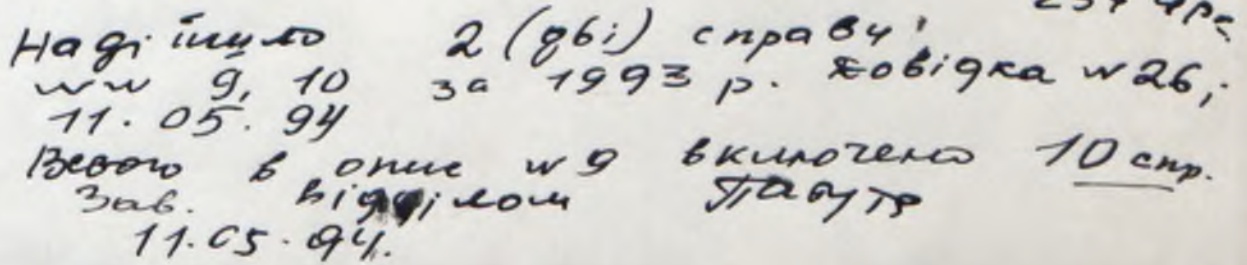 Надійшло 2 (дві) справи
№№ 9, 10 за 1993 р. Довідка № 26;
11.05.94
Всього в опис № 9 включено 10 спр.
Зав. відділом
11.05.94.